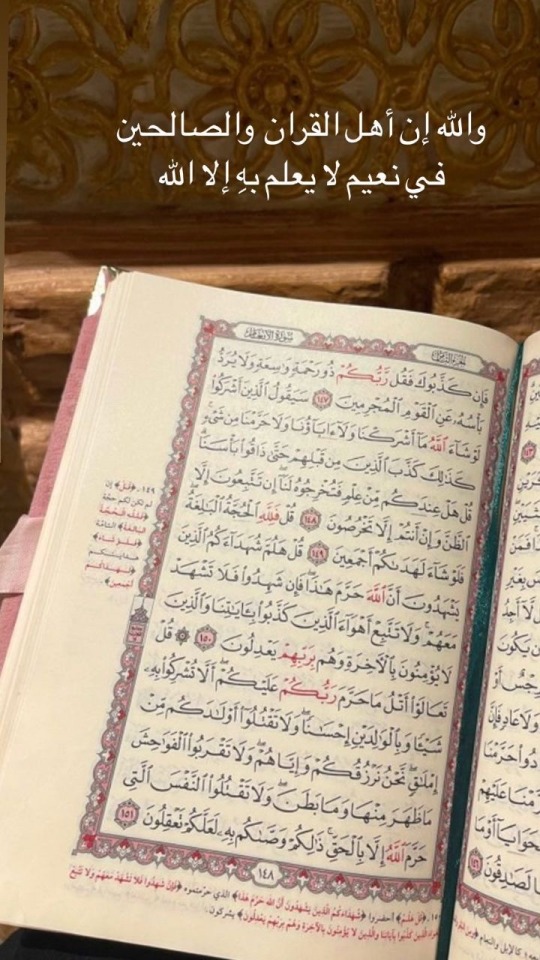 والله إن أهل القران والصالحين
في نعيم لا يعلم بهِ إلا الله
سورة الأنعام
الجزء الثامن
فَإِن كَذَّبُوكَ فَقُل رَّبُّكُمْ ذُو رَحْمَةٍ وَاسِعَةٍ وَلَا يُرَدُّ
بَأْسُهُ عَنِ الْقَوْمِ الْمُجْرِمِينَ ١٤٧ سَيَقُولُ الَّذِينَ أَشْرَكُوا
لَوْ شَاءَ اللَّهُ مَا أَشْرَكْنَا وَلَا ءَابَاؤُنَا وَلَا حَرَّمْنَا مِن شَيْءٍ
كَذَٰلِكَ كَذَّبَ الَّذِينَ مِن قَبْلِهِمْ حَتَّىٰ ذَاقُوا بَأْسَنَا
قُلْ هَلْ عِندَكُم مِّنْ عِلْمٍ فَتُخْرِجُوهُ لَنَا إِن تَتَّبِعُونَ إِلَّا
الظَّنَّ وَإِنْ أَنتُمْ إِلَّا تَخْرُصُونَ ١٤٨ قُلْ فَلِلَّهِ الْحُجَّةُ الْبَالِغَةُ
فَلَوْ شَاءَ لَهَدَىٰكُمْ أَجْمَعِينَ ١٤٩ قُلْ هَلُمَّ شُهَدَاءَكُمُ الَّذِينَ
يَشْهَدُونَ أَنَّ اللَّهَ حَرَّمَ هَٰذَا فَإِن شَهِدُوا فَلَا تَشْهَدْ
مَعَهُمْ وَلَا تَتَّبِعْ أَهْوَاءَ الَّذِينَ كَذَّبُوا بِـَٔايَٰتِنَا وَالَّذِينَ
لَا يُؤْمِنُونَ بِالْءَاخِرَةِ وَهُم بِرَبِّهِمْ يَعْدِلُونَ ١٥٠ ۞ قُلْ
تَعَالَوْا أَتْلُ مَا حَرَّمَ رَبُّكُمْ عَلَيْكُمْ أَلَّا تُشْرِكُوا بِهِ
شَيْـًٔا وَبِالْوَٰلِدَيْنِ إِحْسَٰنًا وَلَا تَقْتُلُوا أَوْلَٰدَكُم مِّنْ
إِمْلَٰقٍ نَّحْنُ نَرْزُقُكُمْ وَإِيَّاهُمْ وَلَا تَقْرَبُوا الْفَوَٰحِشَ
مَا ظَهَرَ مِنْهَا وَمَا بَطَنَ وَلَا تَقْتُلُوا النَّفْسَ الَّتِي
حَرَّمَ اللَّهُ إِلَّا بِالْحَقِّ ذَٰلِكُمْ وَصَّىٰكُم بِهِ لَعَلَّكُمْ تَعْقِلُونَ ١٥١
١٤٨